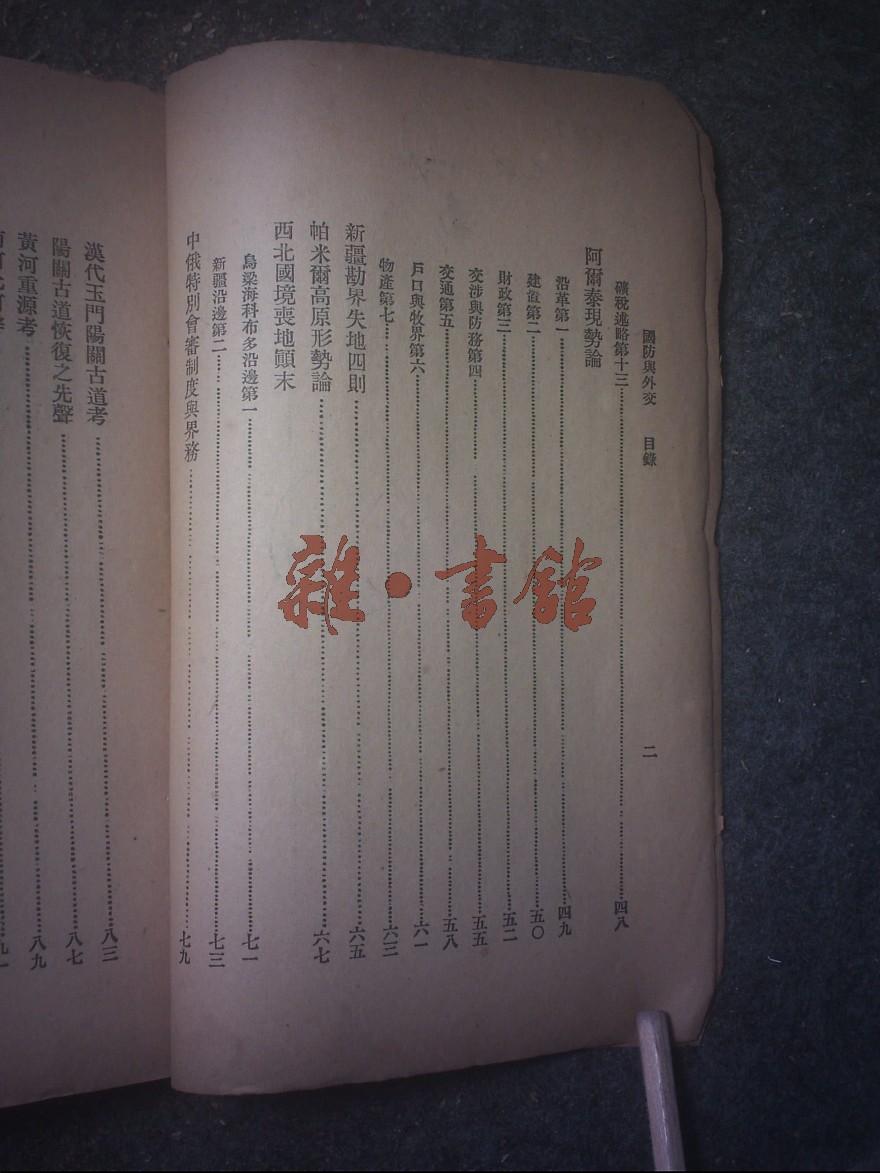 國防與外交 目錄 二
礦稅述略第十三 四八
阿爾泰現勢論
沿革第一 四九
建置第二 五〇
財政第三 五二
交涉與防務第四 五五
交通第五 五八
戶口與牧界第六 六一
物產第七 六三
新疆勘界失地四則 六五
帕米爾高原形勢論 六七
西北國境喪地顛末
烏梁海科布多沿邊第一 七一
新疆沿邊第二 七三
中俄特別會審制度與界務 七九
漢代玉門陽關古道考 八三
陽關古道恢復之先聲 八七
黃河重源考 八九
雜·書館